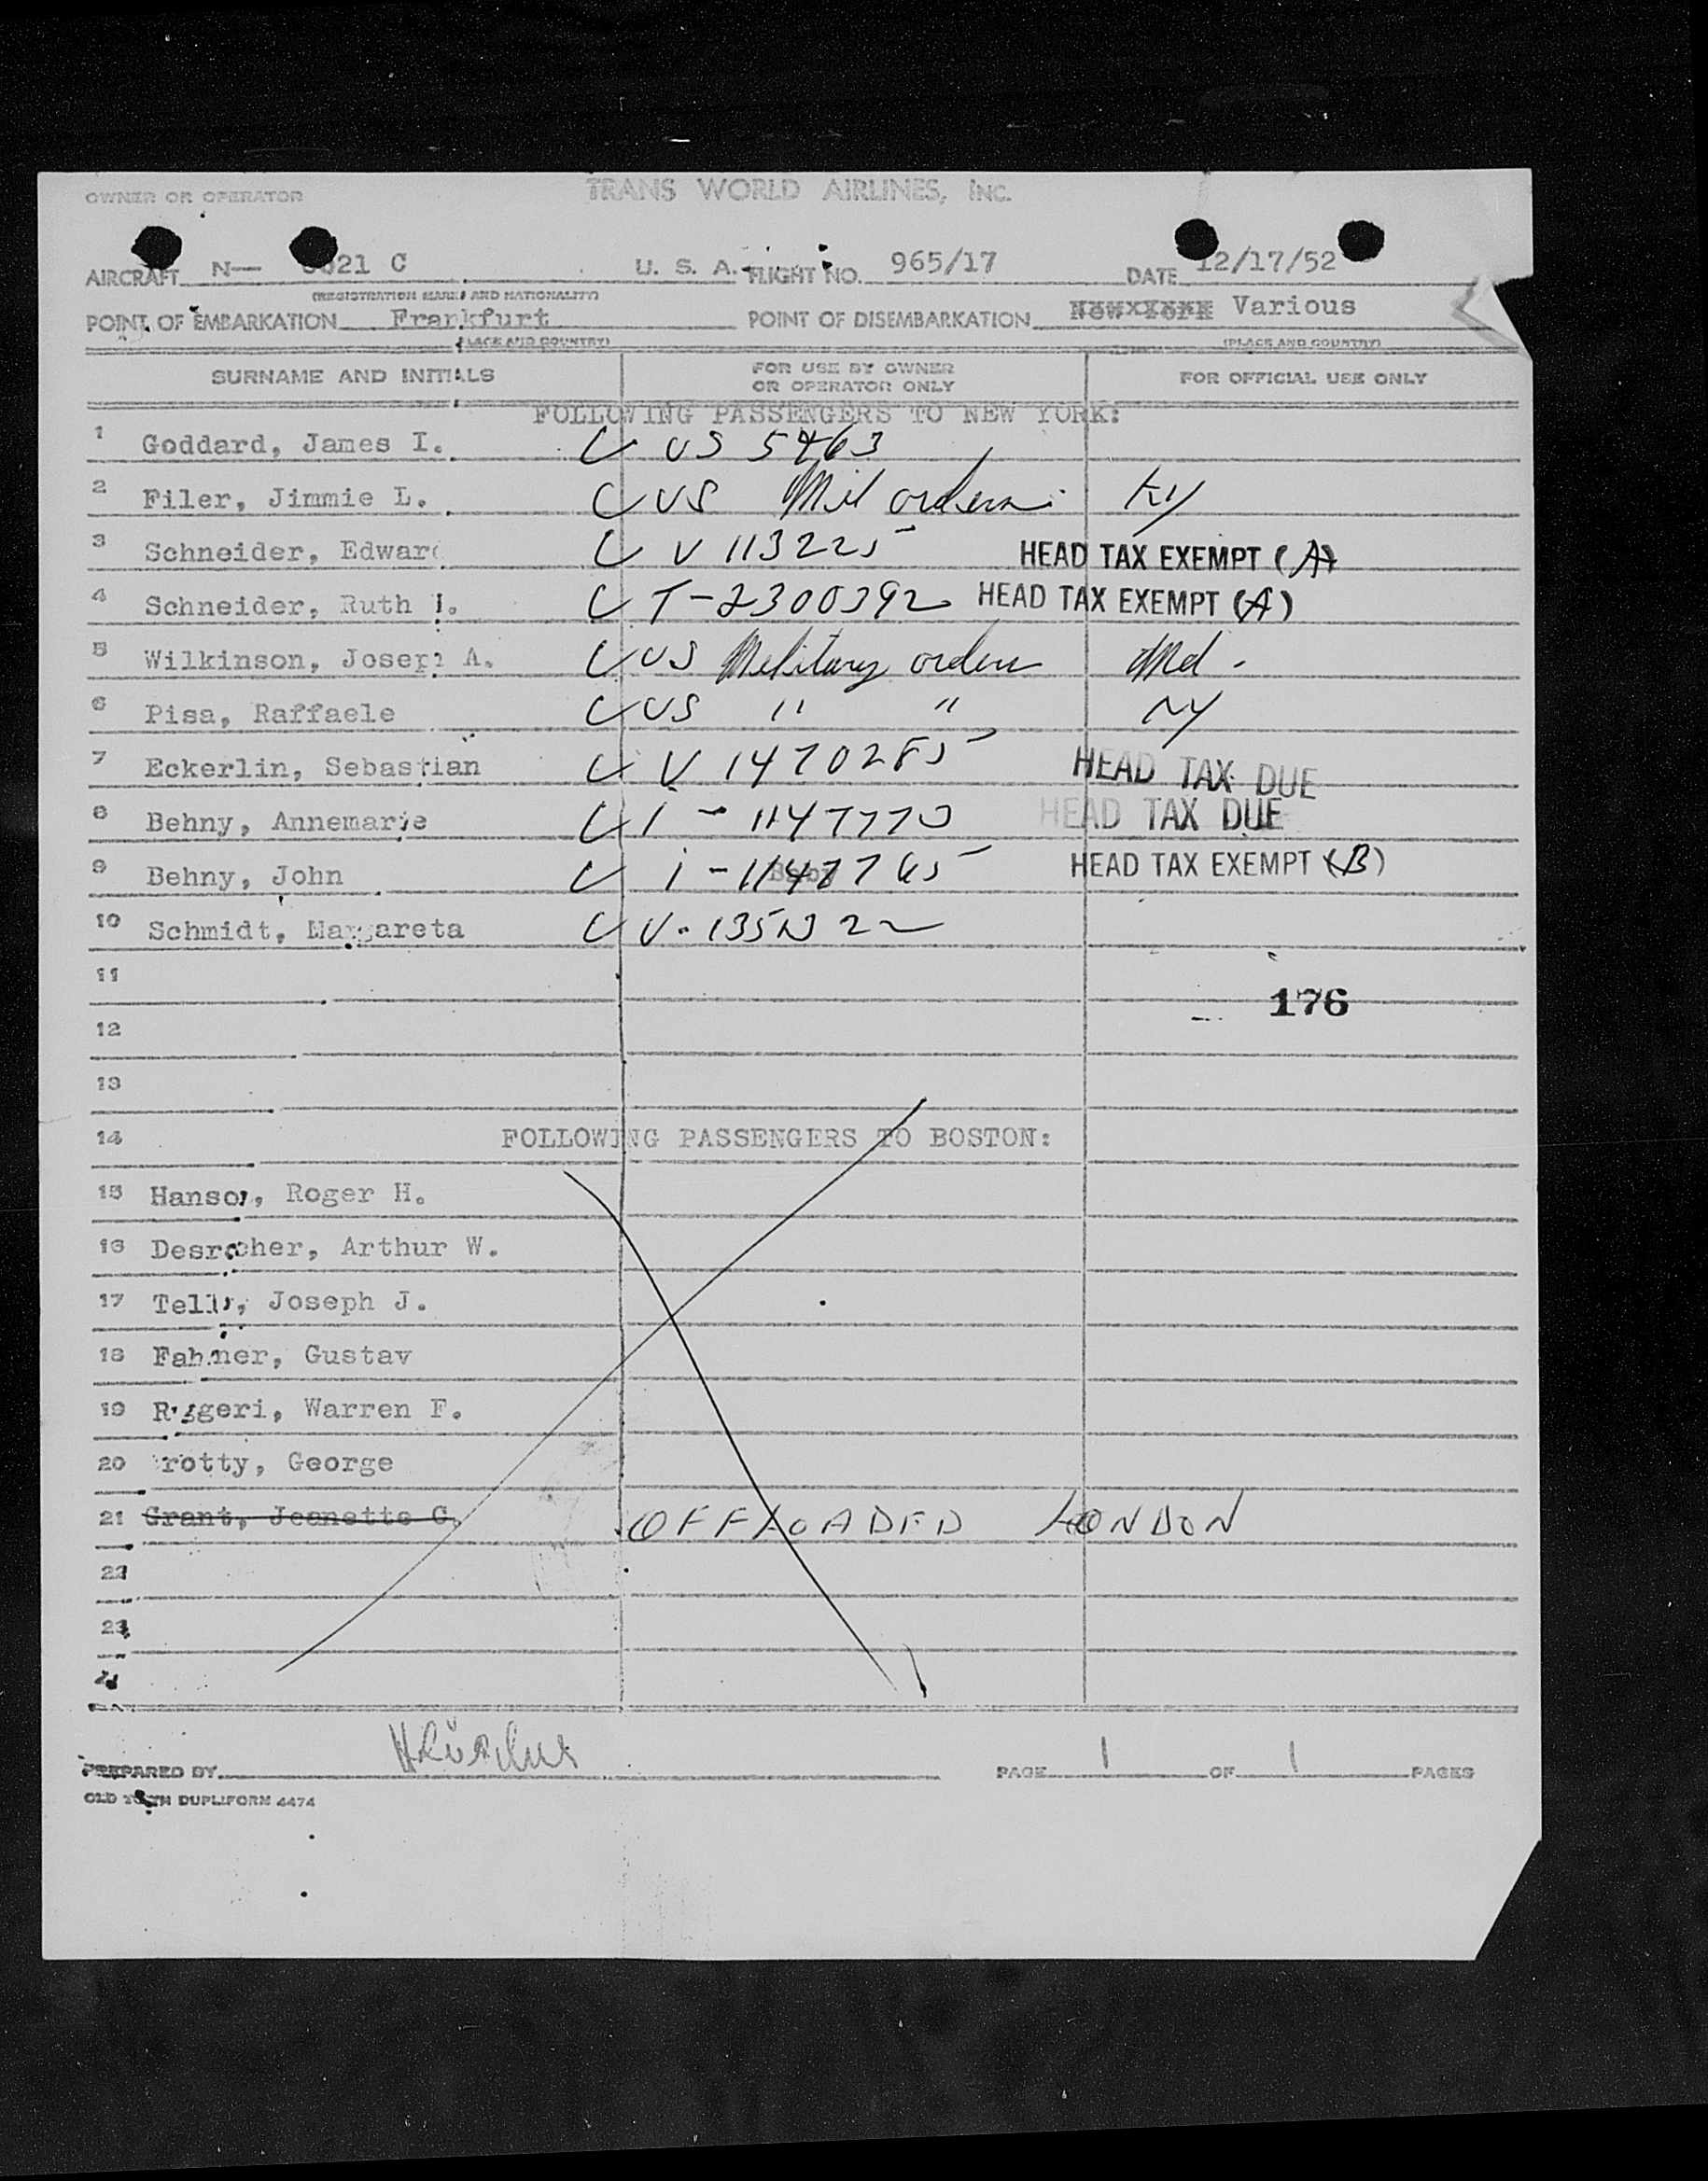 OWNER OR OPERATOR TRANS WORLD AIRLINES, INC.
AIRCRAFT N— 021 C U. S. A. FLIGHT NO. 965/17 DATE 12/17/52
(REGISTRATION MARKS AND NATIONALITY)
POINT OF EMBARKATION Frankfurt POINT OF DISEMBARKATION New York Various
(PLACE AND COUNTRY) (PLACE AND COUNTRY)
SURNAME AND INITIALS FOR USE BY OWNER OR OPERATOR ONLY FOR OFFICIAL USE ONLY
FOLLOWING PASSENGERS TO NEW YORK:
1 Goddard, James I. US 5463
2 Filer, Jimmie L. US Mil orders Ky
3 Schneider, Edward V 113225 HEAD TAX EXEMPT (A)
4 Schneider, Ruth I. T-2300392 HEAD TAX EXEMPT (A)
5 Wilkinson, Joseph A. US Military orders Md.
6 Pisa, Raffaele US " " NY
7 Eckerlin, Sebastian V 1470285 HEAD TAX DUE
8 Behny, Annemarie I - 1147770 HEAD TAX DUE
9 Behny, John I - 1147765 HEAD TAX EXEMPT (B)
10 Schmidt, Margareta V-
11
176
12
13
14 FOLLOWING PASSENGERS TO BOSTON:
15 Hanson, Roger H.
16 Desrocher, Arthur W.
17 Joseph J.
18 Gustav
19 Ruggeri, Warren F.
20 George
21 Grant, Jeanette G. OFFLOADED LONDON
22
23
24
PREPARED BY PAGE 1 OF 1 PAGES
OLD TOWN DUPLIFORM 4474